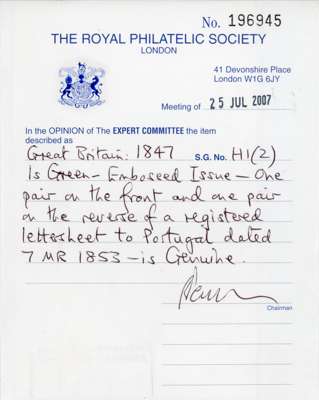 No. 196945
THE ROYAL PHILATELIC SOCIETY
LONDON
41 Devonshire Place
London W1G 6JY
Meeting of 25 JUL 2007
In the OPINION of The EXPERT COMMITTEE the item
described as
Great Britain: 1847 S.G. No. H1(2)
1s Green - Embossed Issue - One
pair on the front and one pair
on the reverse of a registered
lettersheet to Portugal dated
7 MR 1853 - is Genuine.
Chairman